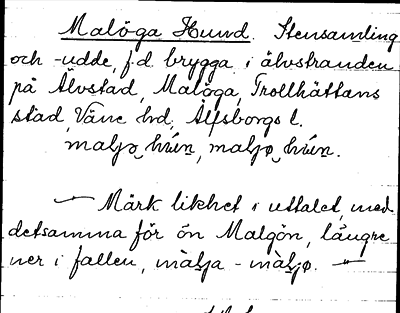 Malöga Hund. Stensamling
och -udde, f.d. brygga i älvstranden
på Älvstad, Malöga, Trollhättans
stad, Väne hd, Älfsborgs l.
— Märk likhet i uttalet med
detsamma för ön Malgön, längre
ner i fallen, màlja - màljø. —